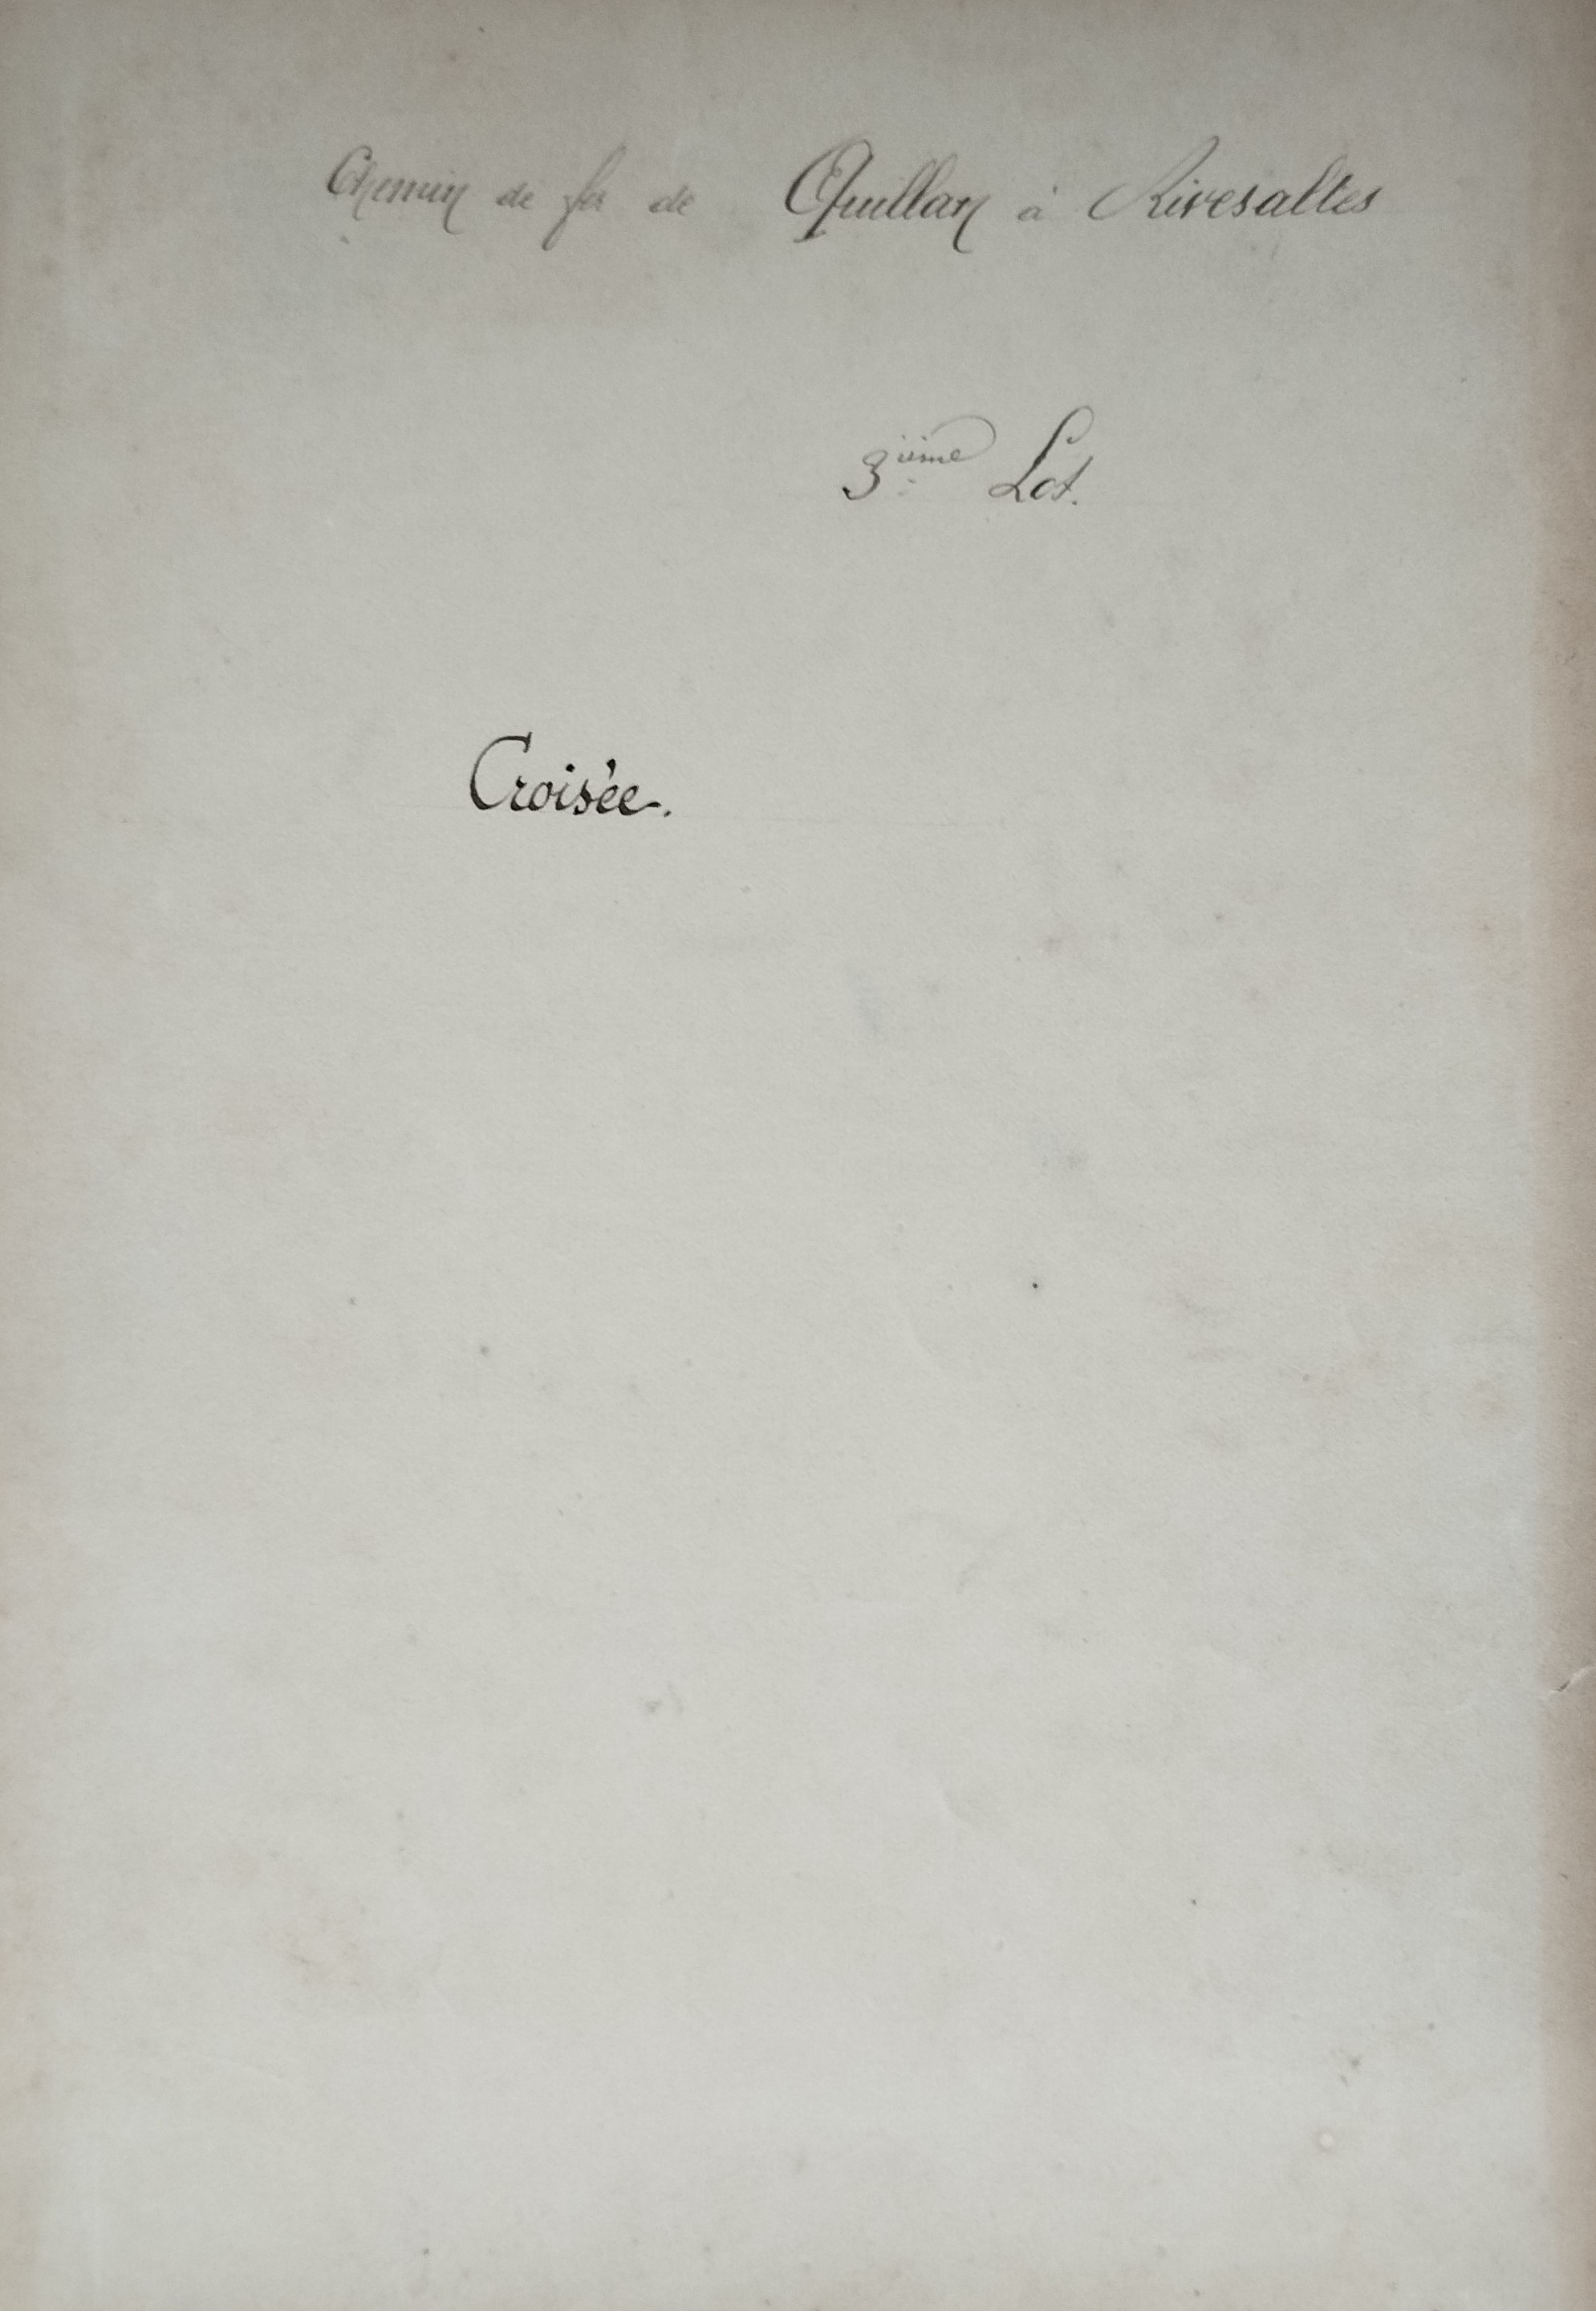 Chemin de fer de Quillan à Rivesaltes
3ième Lot.
Croisée.